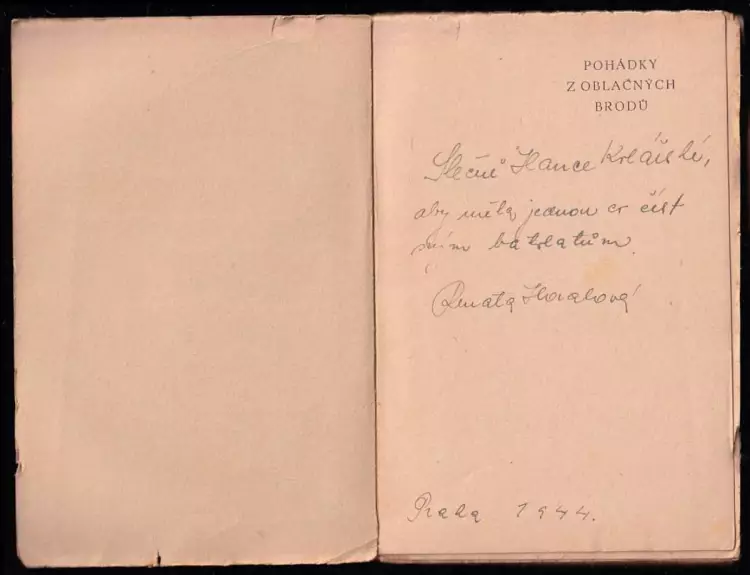 POHÁDKY
Z OBLAČNÝCH
BRODŮ
Slečně Hance
aby měla jednou co číst
svým batolatům.
Renata
Praha 1944.